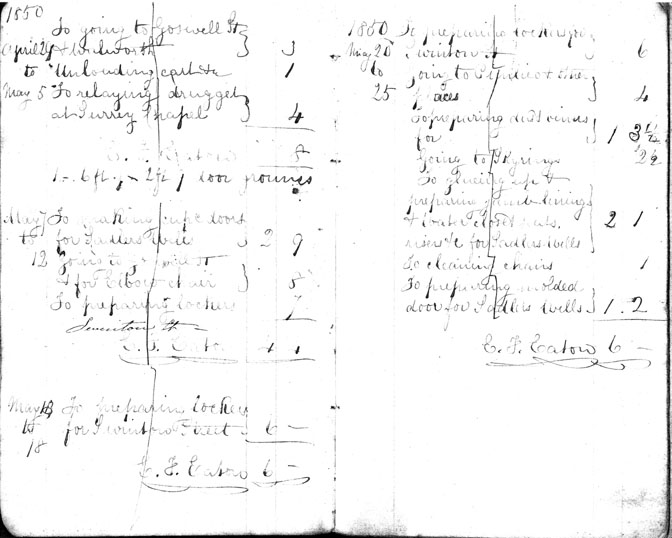 1850
To going to Goswell St
April 29 & 3
to Unlouding cart &c 1
May 5 To relaying drugget
at Surrey Chapel 4
C. F. Eatow 8
1 - 6ft - 2ft door
May 7 To making cup doors
to for Sadlers Wells 2 9
12 Going to
& for Elbow chair 5
To preparing lockers 7
Swinton St
C. F. Eatow 4 1
May 13 To preparin locker
to for Swinton Street 6 -
18
C. F. Eatow 6 -
1850 To preparing lockers for
May 20 Swinton St 6
to going to & other
25 places 4
To preparing
for 1 3 1/2
Going to 2 1/2
To glueing up &
preparing jamb linings
& water closet seats, 2 1
risers &c for Sadlers Wells
To cleaning chairs 1
To preparing molded
door for Sadlers Wells 1.2
C. F. Eatow 6 -